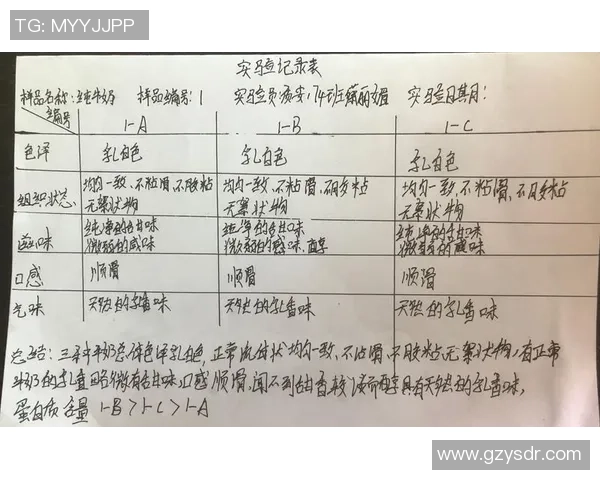 TG: MYYJJPP
实验记录表
样品名称:纯牛奶 样品编号:1 实验员 74班 实验日期:
编号 1-A 1-B 1-C
色泽 乳白色 乳白色 乳白色
组织状态 均匀一致,不粘滑,不胶粘 均匀一致,不粘滑,不胶粘 均匀一致,不粘滑,不胶粘
无絮状物 无絮状物 无絮状物
滋味 纯净的甘味 纯净的甘味 纯净的甘味
微弱的咸味 微弱的咸味 微弱的咸味
口感 顺滑 顺滑 顺滑
气味 天然的乳香味 天然的乳香味 天然的乳香味
总结:三杯牛奶总体色泽乳白色,正常流体状均匀一致,不沾滑,不胶粘无絮状物,有正常
牛奶的 略微有甘味,口感顺滑,闻不到 具有天然的乳香味,
蛋白质含量 1-B>1-C>1-A
www.gzysdr.com